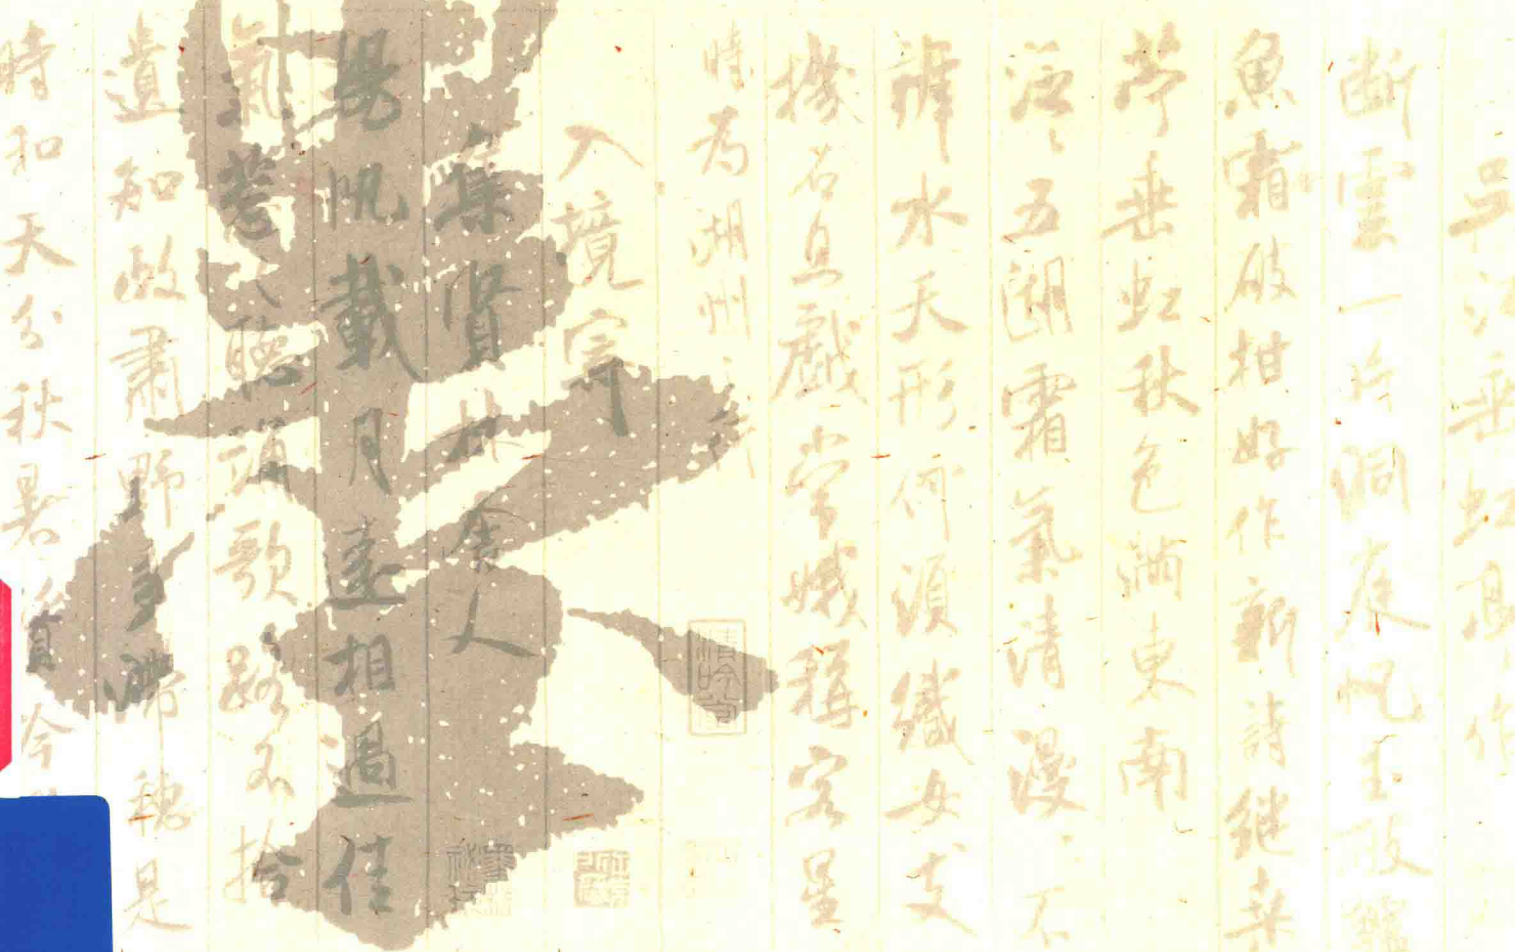 吳江垂虹亭作
斷雲一片洞庭帆玉破鱸
魚霜破柑好作新詩繼桑
苧垂虹秋色滿東南
泛〻五湖霜氣清漫〻不
辨水天形何須織女支
機石且戲常娥稱客星
時為湖州之行
入境寄
集賢林舍人
揚帆載月遠相過佳
氣葱〻聽頌歌路不拾
遺知政肅野多滯穗是
時和天分秋暑資吟